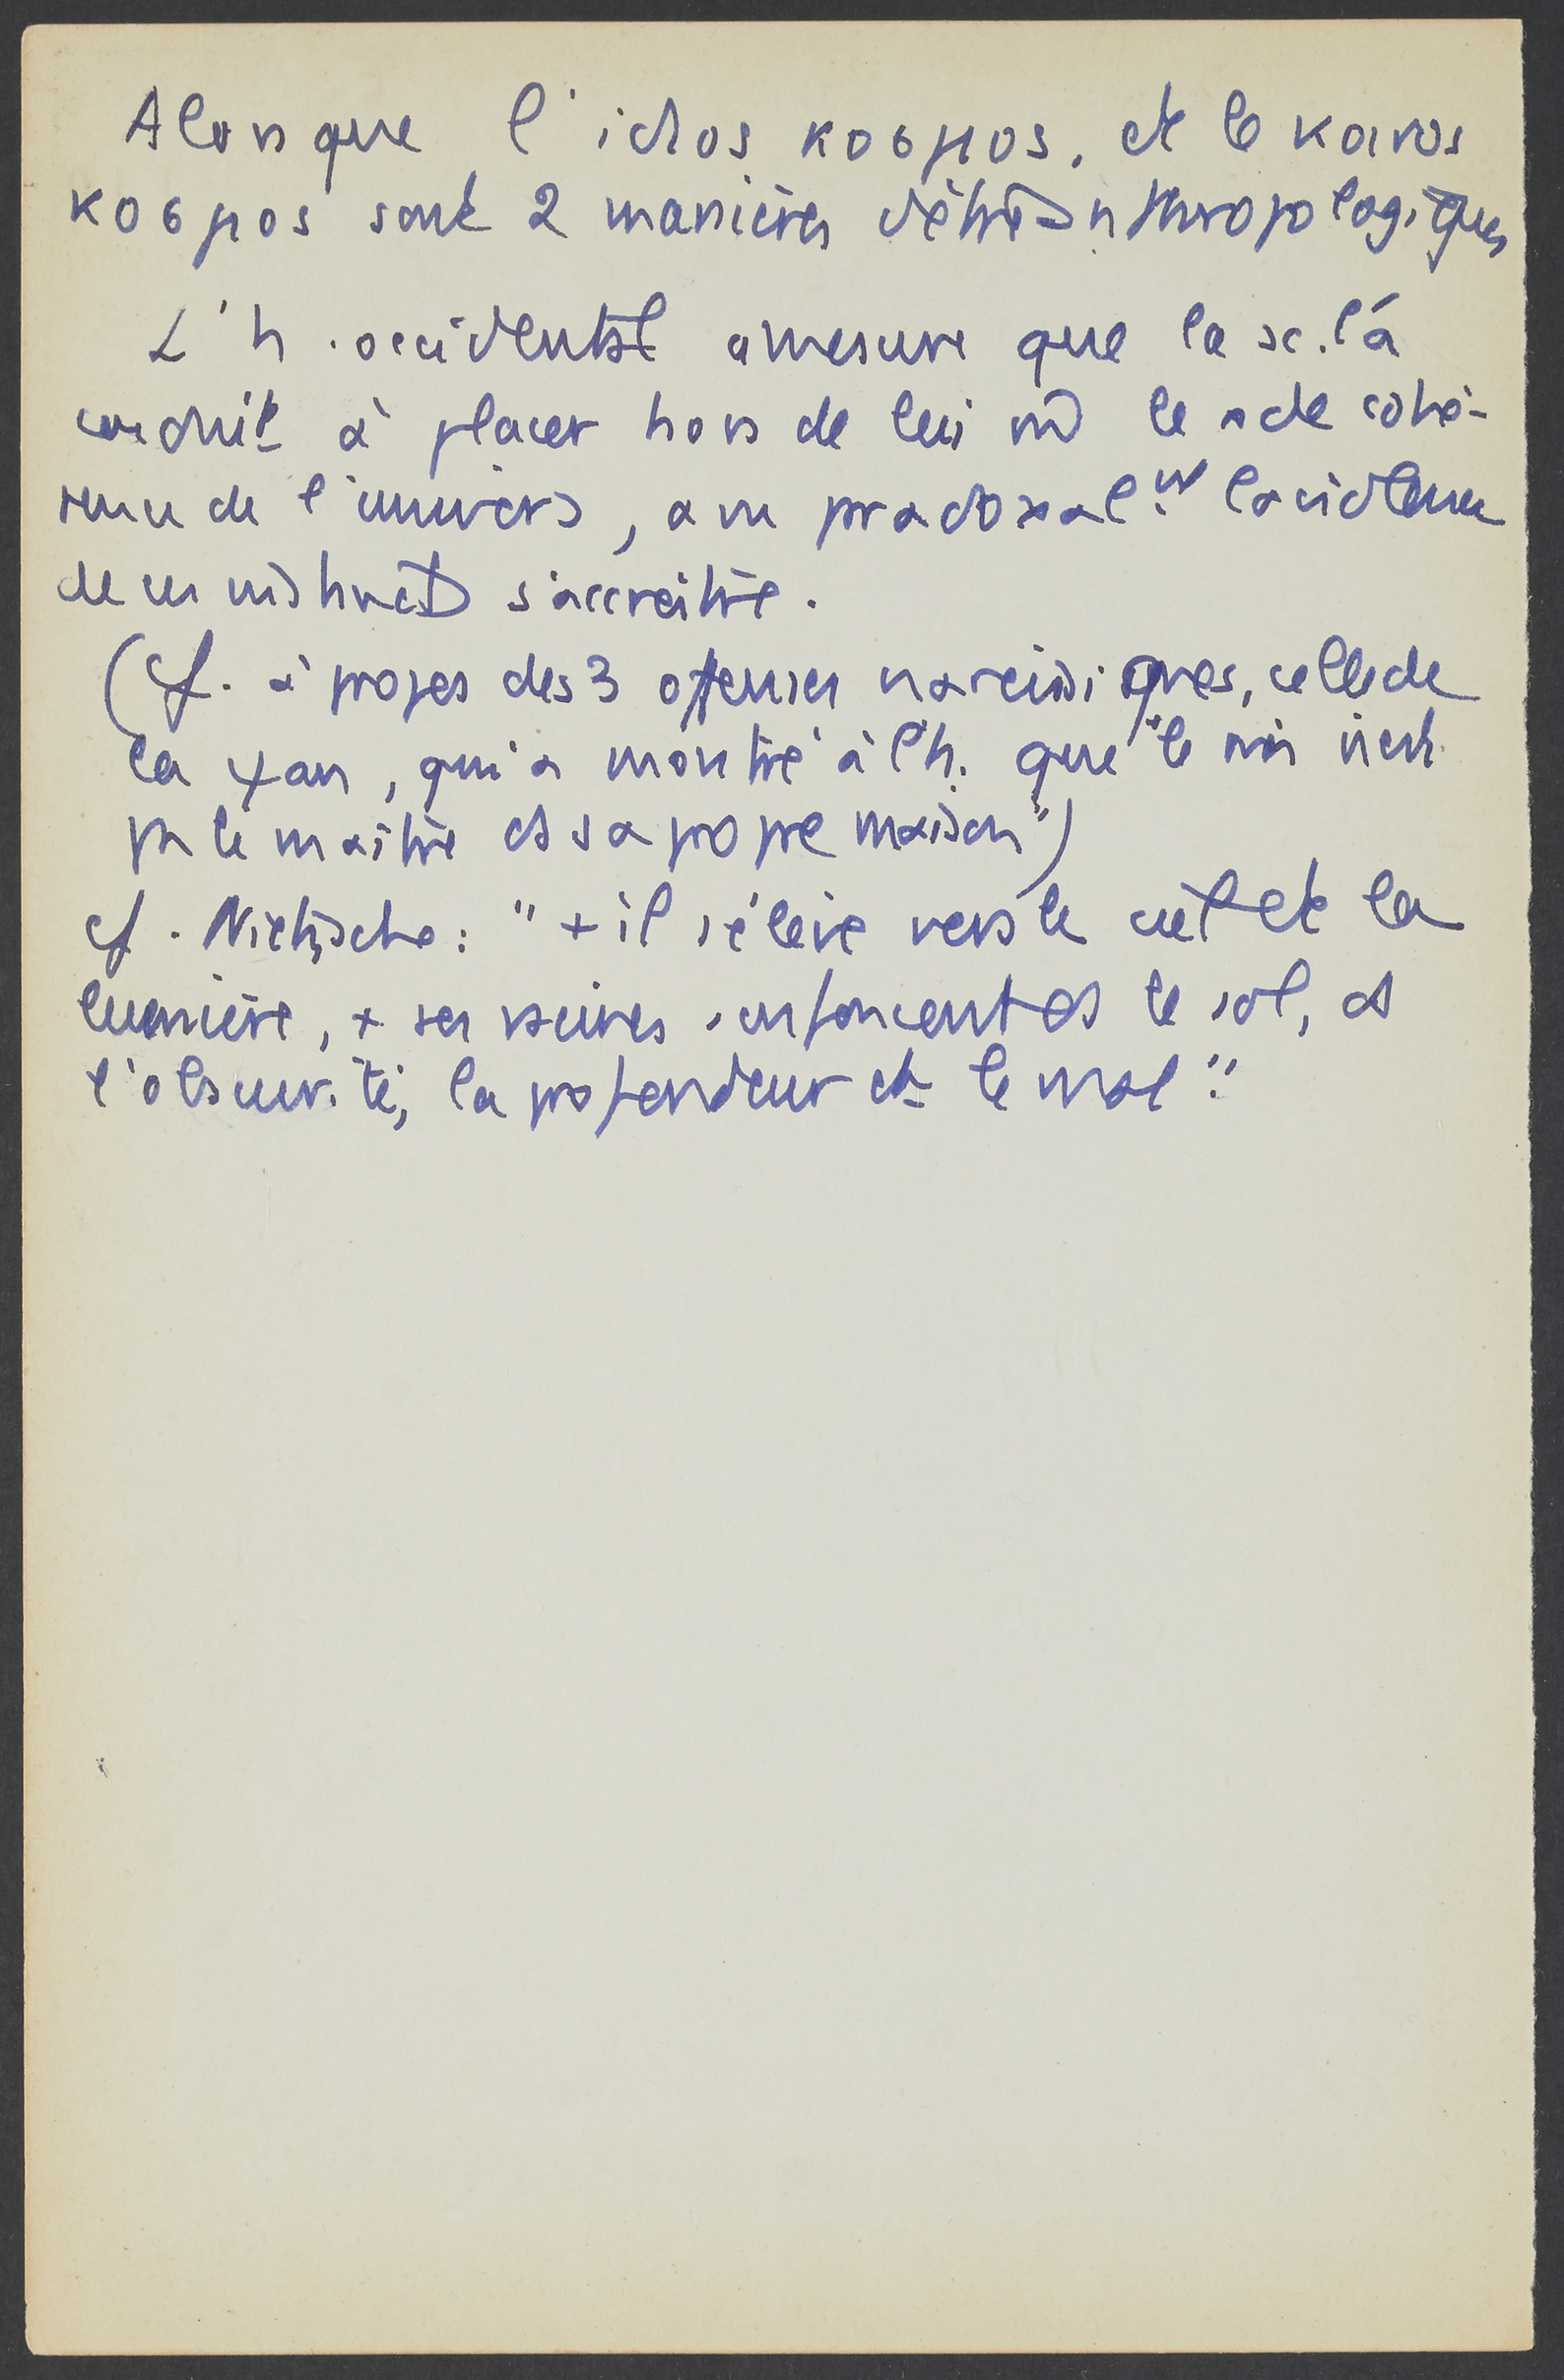 Alors que l'idios κοσμος, et le κοινος
κοσμος sont 2 manières d'être anthropologiques
L'h. occidental a mesure que la sc. l'a
conduit à placer hors de lui le de cohé-
rence de l'univers, a vu pradoxalt l'évidence
de ces s'accroitre.
(cf. à propos des 3 offenses narcissiques, celle de
la ψan, qui a montré à l'h. que "le moi n'est
pas le maitre ds sa propre maison")
cf. Nietzsche : "+ il s'élève vers le ciel et la
lumière, + ses racines s'enfoncent ds le sol, ds
l'obscurité, la profondeur et le mal".